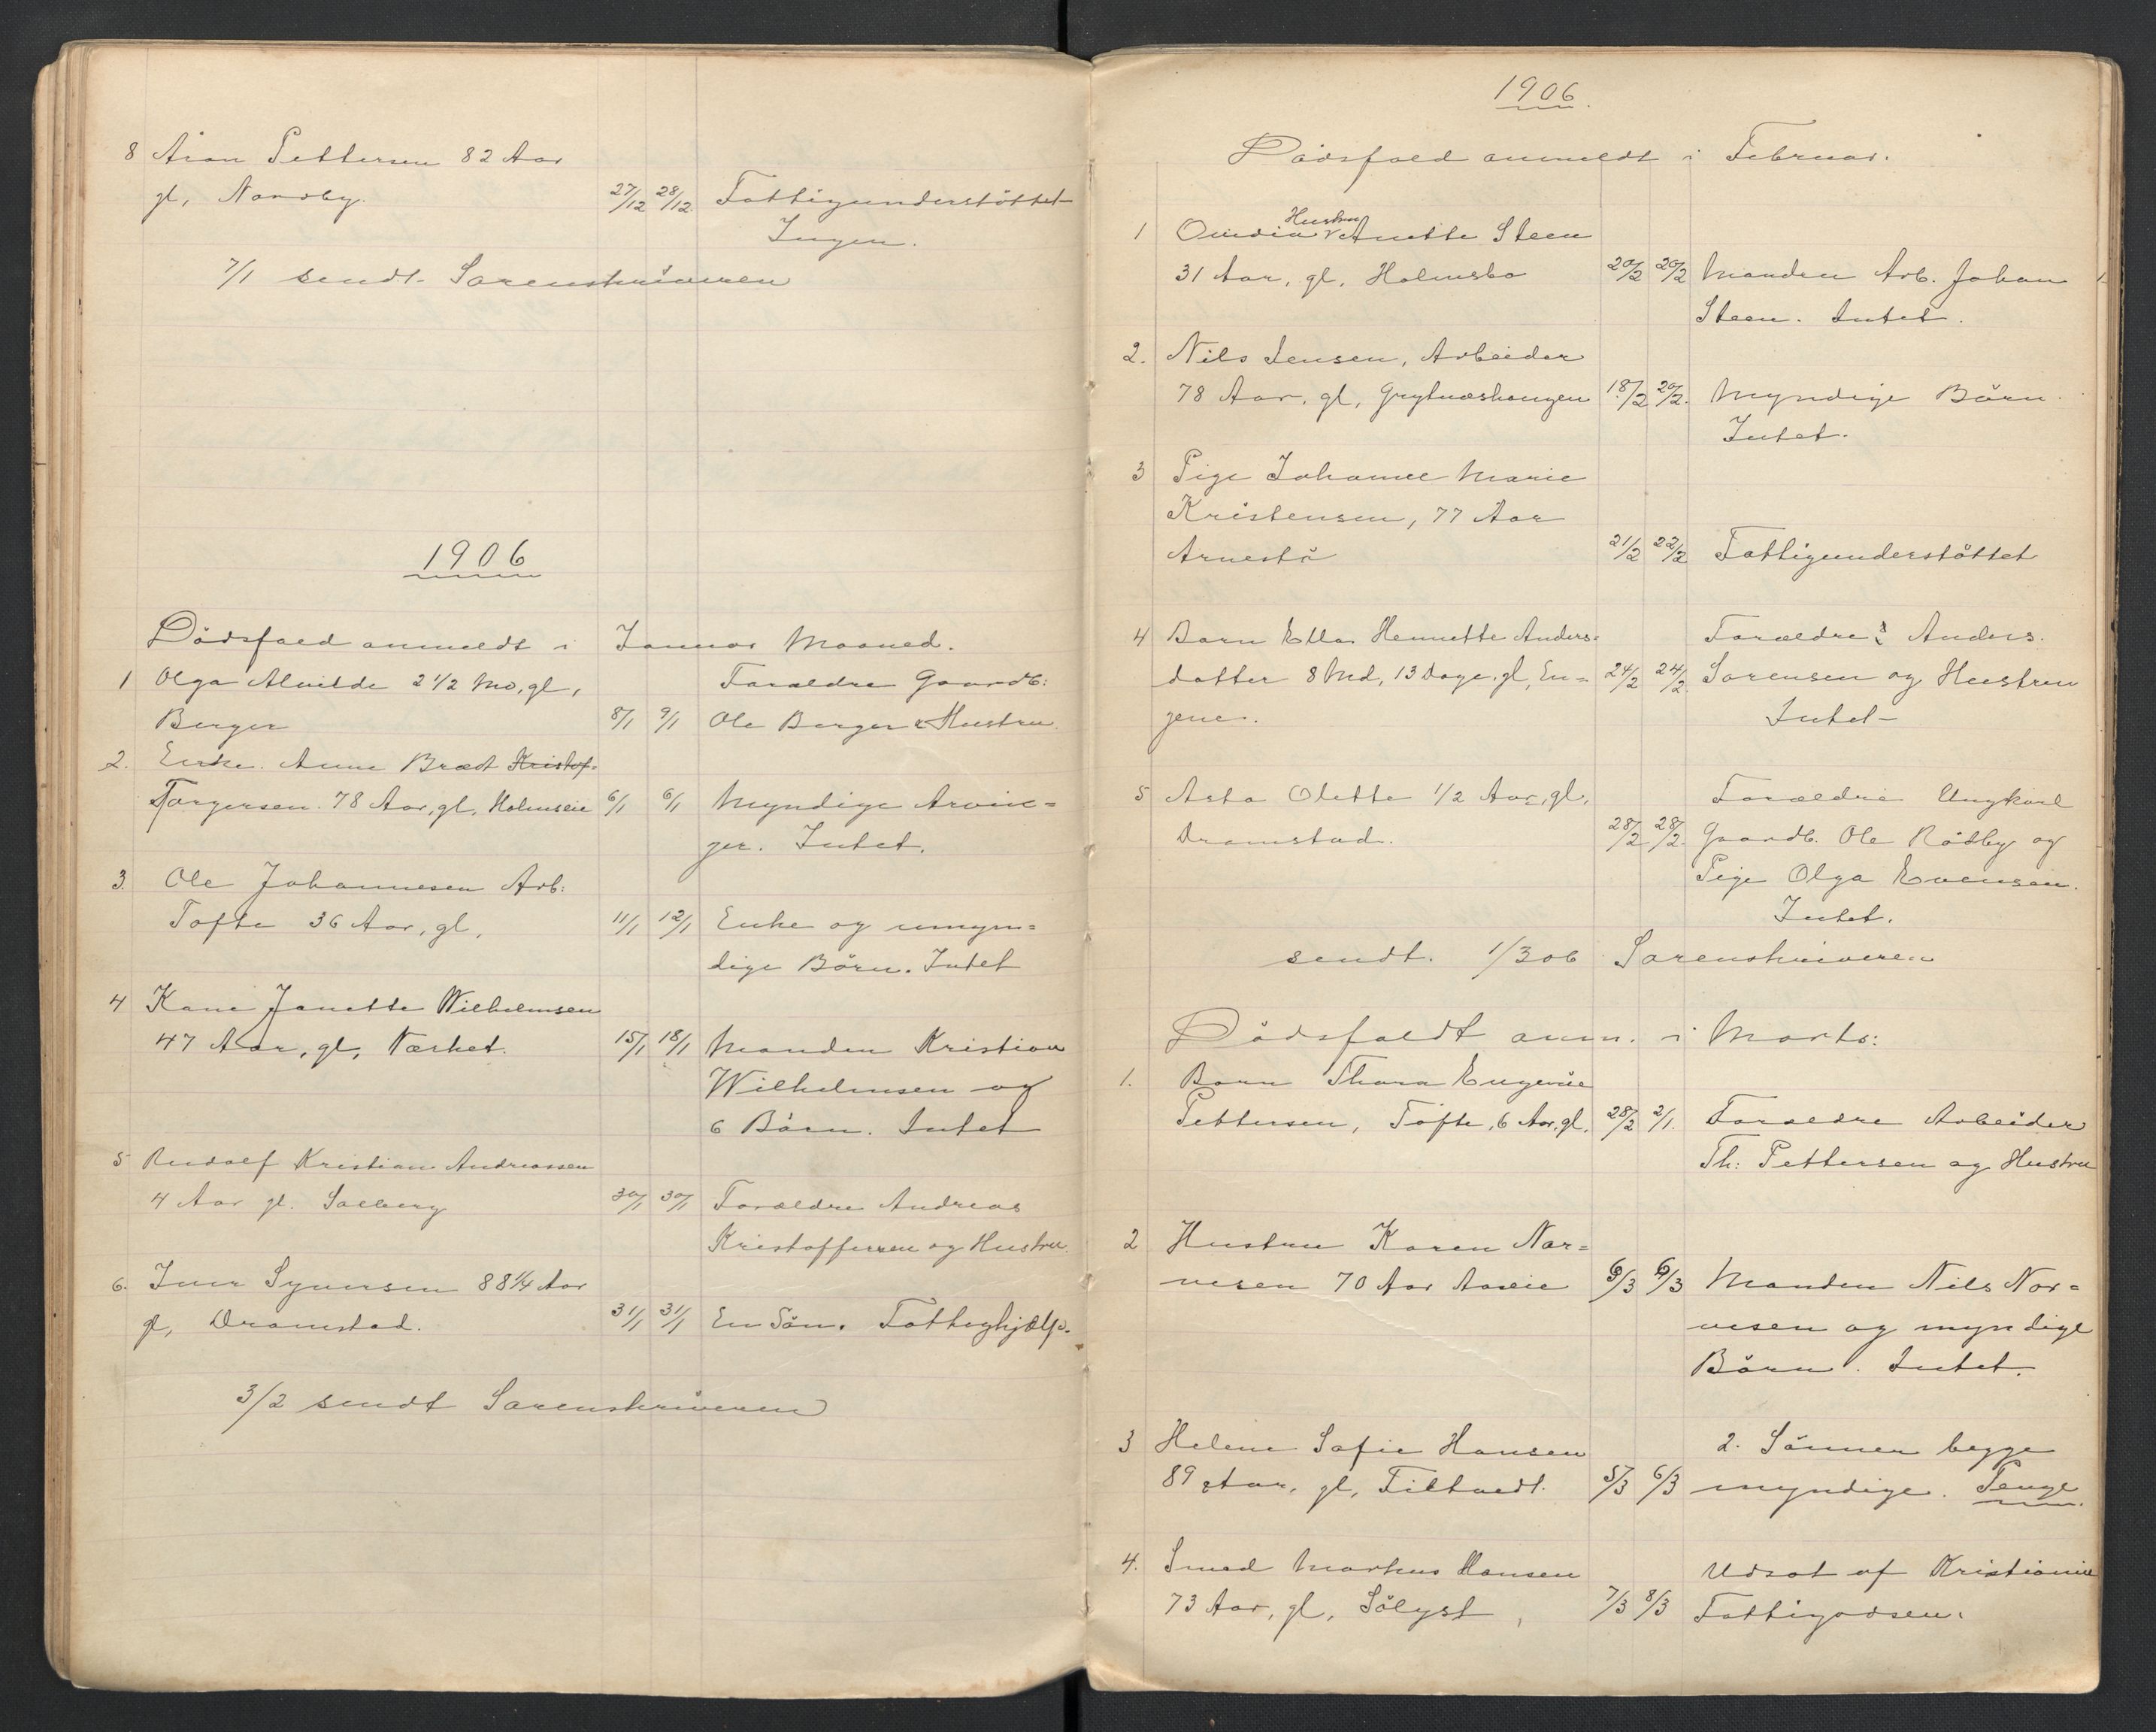 8 Aron Pettersen 82 Aar
gl, Nordby. 27/12 28/12. Fattigunderstöttet
Ingen.
7/1 sendt Sorenskriveren
1906
Dödsfald anmeldt i Januar Maaned.
1 Olga Alvilde 2 1/2 Md, gl, Forældre Gaardb:
Berger 8/1 9/1 Ole Berger & Hustru.
2. Enke. Anne Brædt Kristof-
Torgersen. 78 Aar, gl, Holmseie 6/1 6/1 Myndige Arvin=
ger. Intet.
3. Ole Johannesen Arb:
Tofte 36 Aar, gl, 11/1 12/1 Enke og umyn=
dige Börn. Intet
4 Kone Janette Wilhelmsen
47 Aar, gl, Nærket. 15/1 18/1 Manden Kristian
Wilhelmsen og
6 Börn. Intet
5 Rudolf Kristian Andreassen
4 Aar gl. Solberg 30/1 30/1 Forældre Andreas
Kristoffersen og Hustru.
6. Iver Syversen 88 1/4 Aar
gl, Dramstad. 31/1 31/1 En Sön. Fattighjælp.
3/2 sendt Sorenskriveren
1906.
Dödsfald anmeldt i Februar.
Hustru
1 Ovidia Anette Steen
31 Aar, gl, Holmsbo 20/2 20/2 Manden Arb. Johan
Steen. Intet.
2. Nils Jensen, Arbeider
78 Aar, gl, Grytnæshaugen 18/2 20/2. Myndige Börn.
Intet.
3 Pige Johanne Marie
Kristensen, 77 Aar
Arnestö 21/2 22/2 Fattigunderstöttet
4 Barn Ella Hennette Anders- Forældre: Anders
datter 8 Md, 13 Dage, gl, En= 24/2 24/2. Sorensen og Hustru
gene. Intet -
5 Asta Olette 1/2 Aar, gl, Forældre Ungkarl
Dramstad. 28/2 28/2. Gaardb. Ole Rödby og
Pige Olga Evensen.
Intet.
sendt. 1/3 06 Sorenskriveren
Dödsfaldt anm. i Marts:
1. Barn Thora Eugenie
Pettersen, Tofte, 6 Aar, gl. 28/2 2/1. Forældre Arbeider
Th: Pettersen og Hustru
2 Hustru Karen Nar=
vesen 70 Aar Aaseie 6/3 6/3 Manden Nils Nar=
vesen og myndige
Börn. Intet.
3 Helene Sofie Hansen 2. Sönner begge
89 Aar, gl, Filtvedt. 5/3 6/3 myndige. Penge
4. Smed Markus Hansen Udsat af Kristiania
73 Aar, gl, Sölyst, 7/3 8/3 Fattigvæsen.